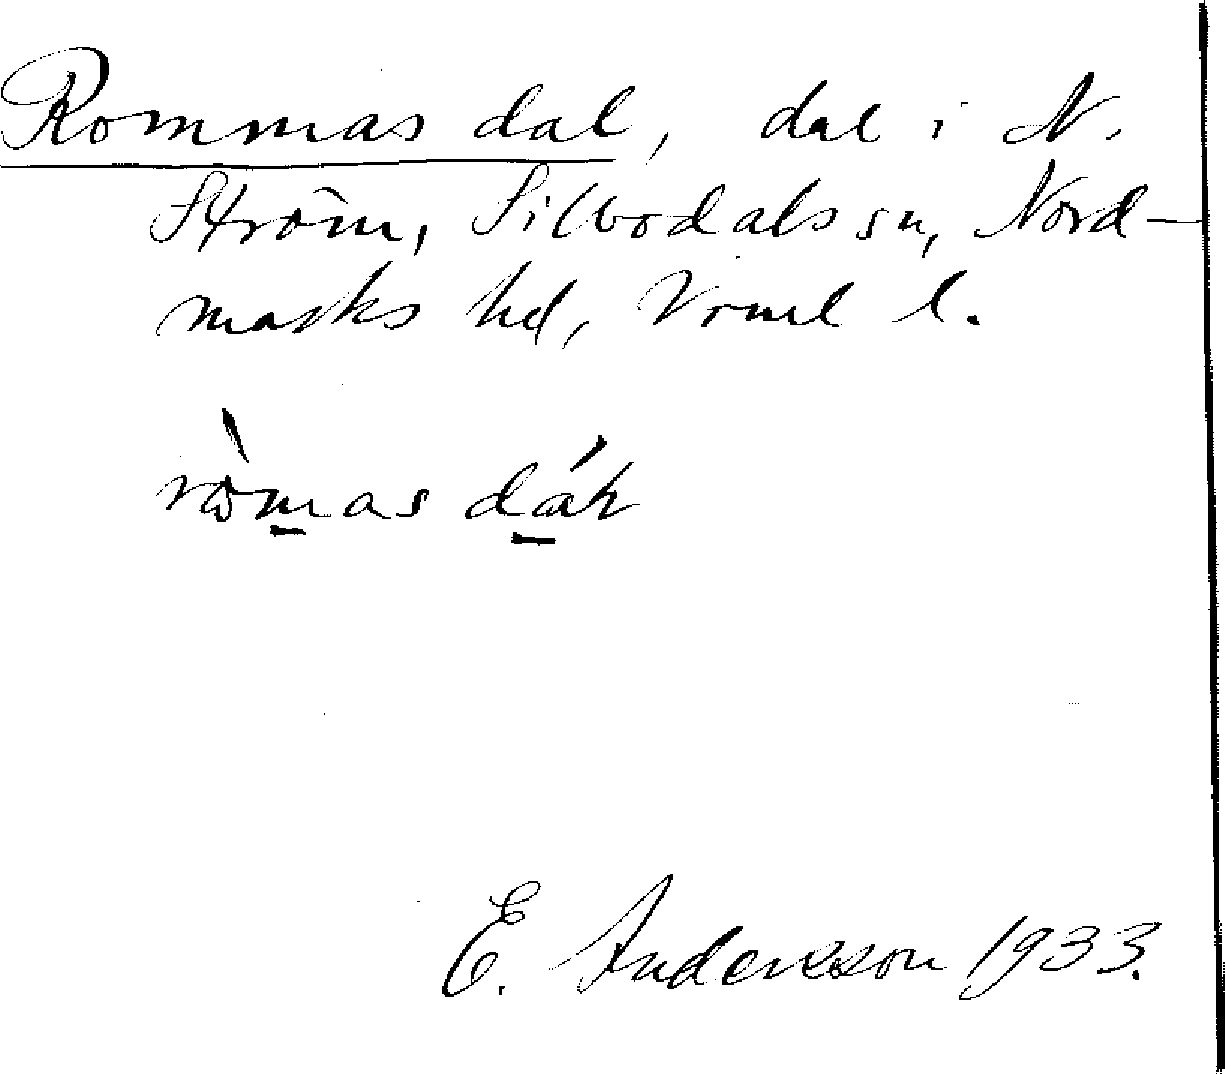 Rommas dal, dal i N.
Ström, Silbodals sn, Nord-
marks hd, Vrml l.
dáɫ
E. Andersson 1933.